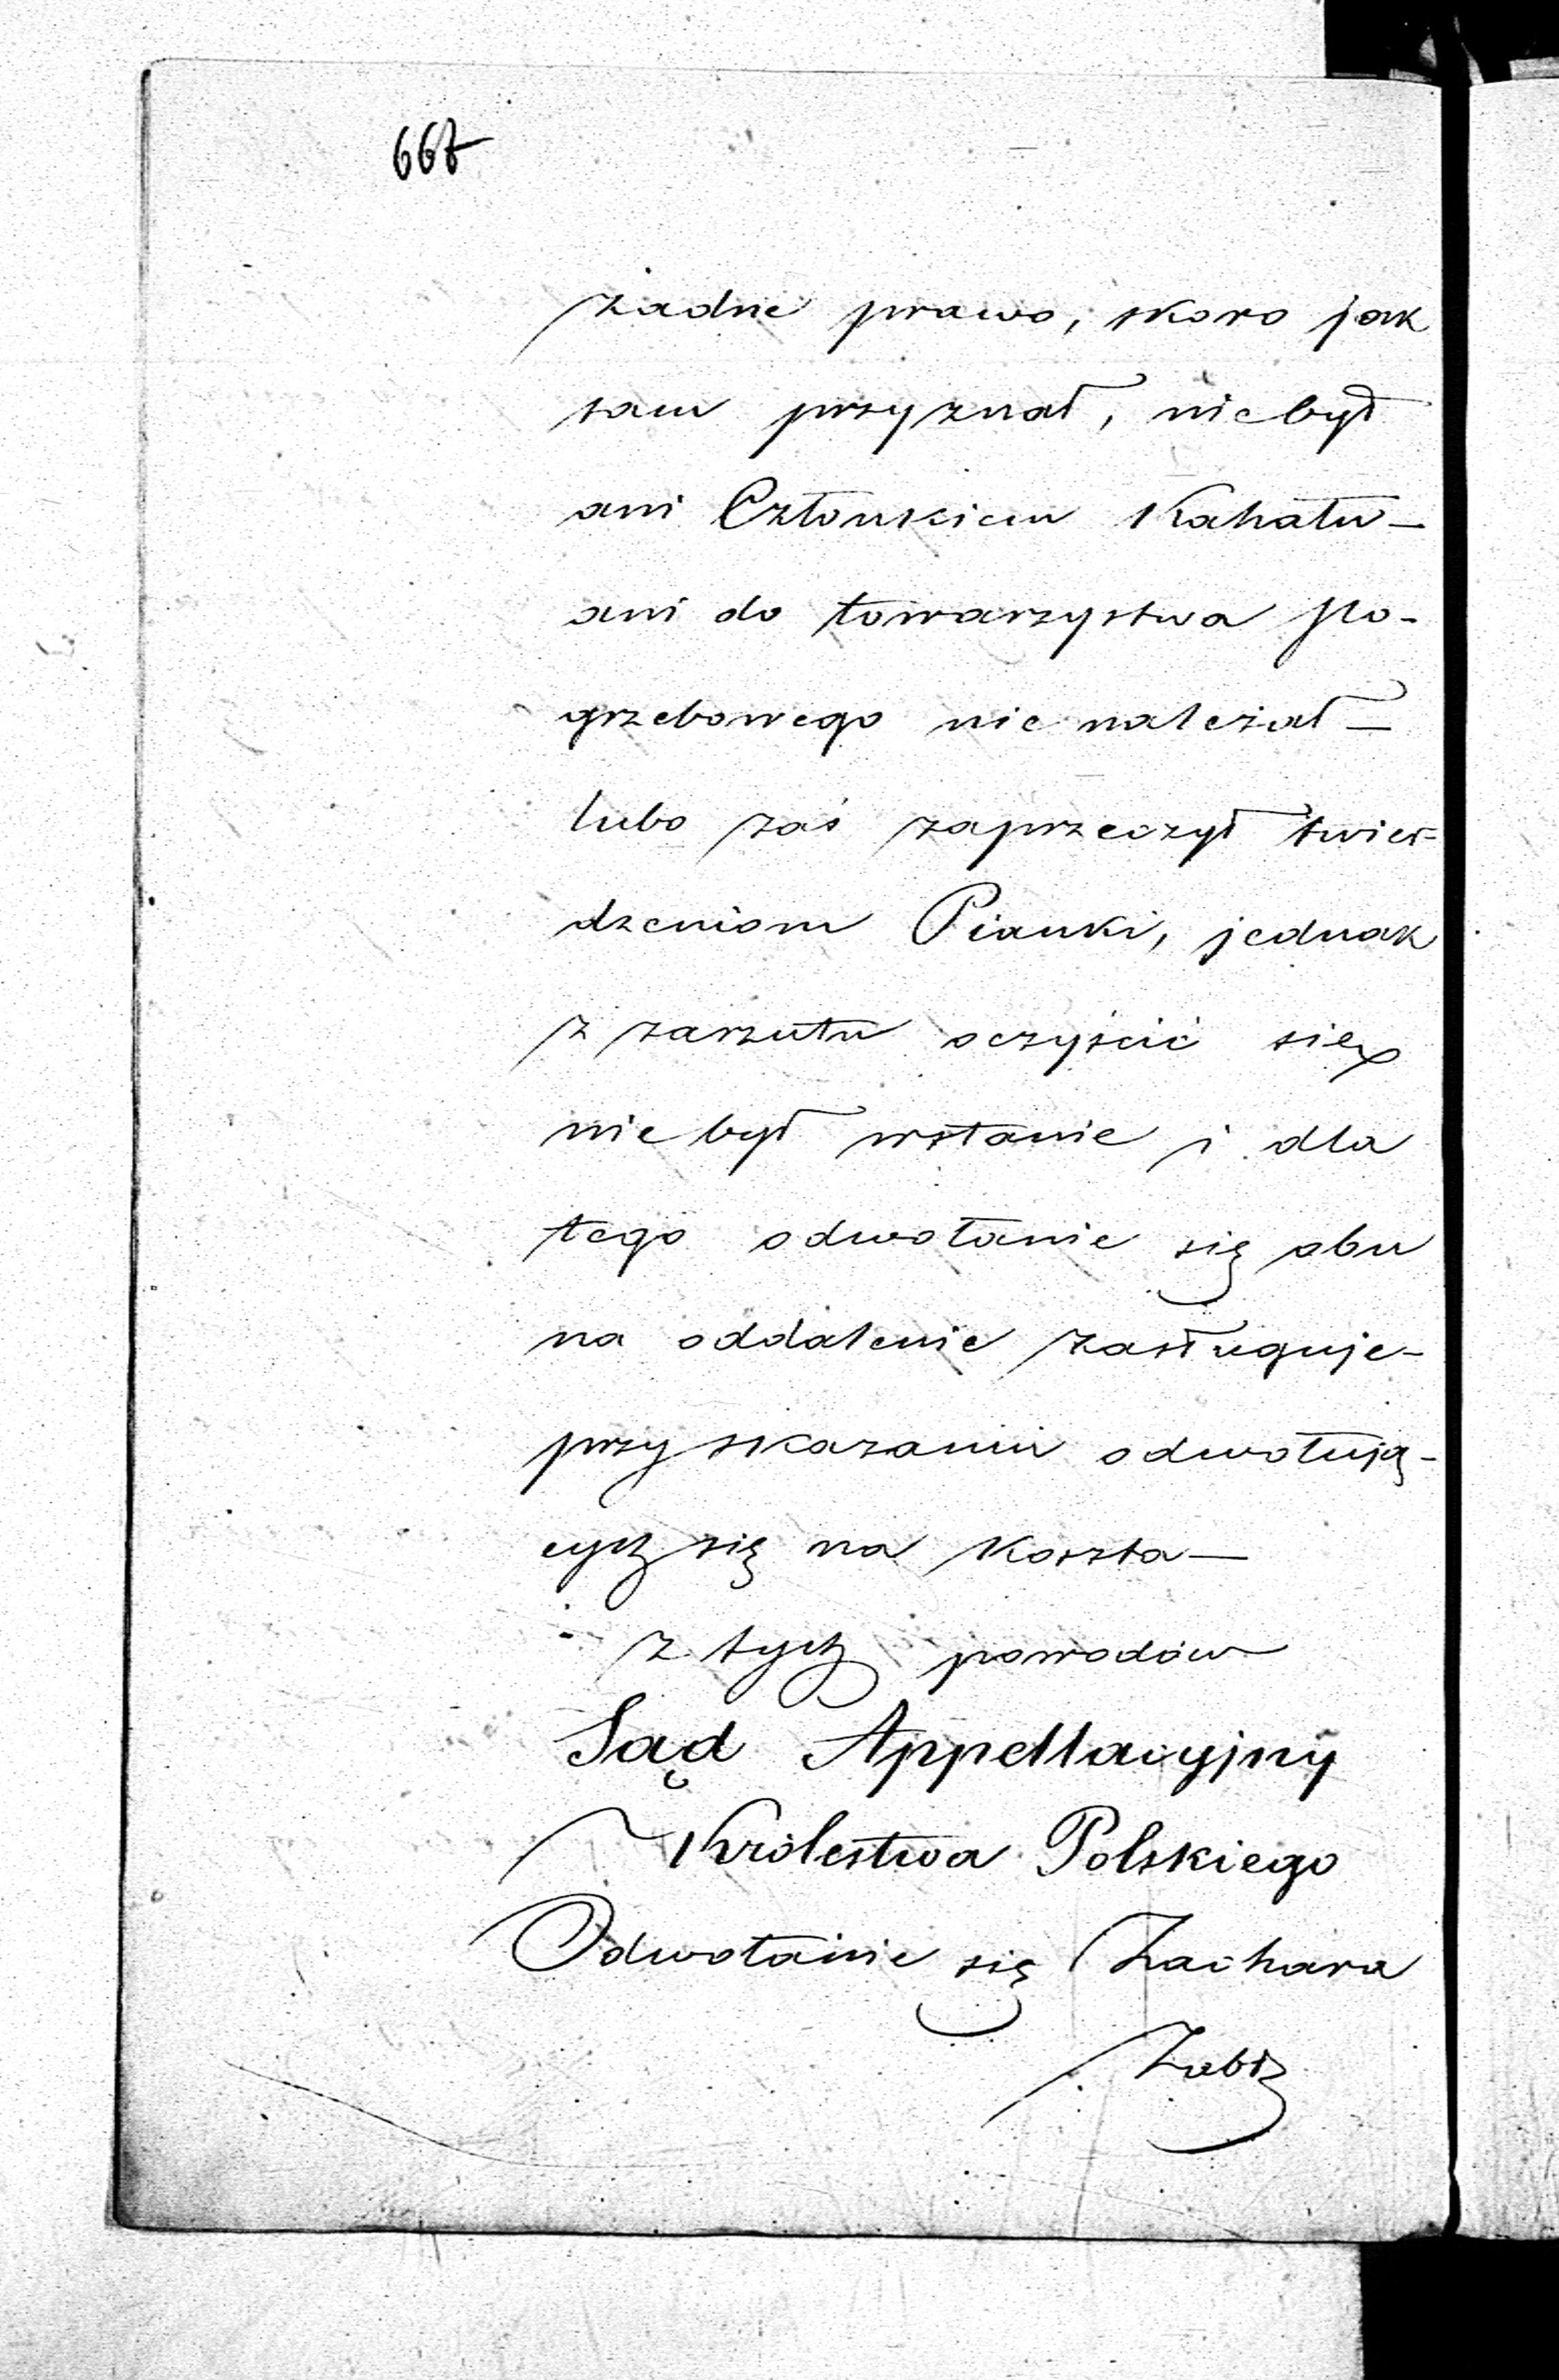 667
żadne prawo, skoro jak
sam przyznał, niebył
ani Członkiem Kahału—
ani do towarzystwa Po-
grzebowego nie należał—
lubo zaś zaprzeczył twier-
dzeniom Pianki, jednak
z zarzutu oczyścić się
nie był wstanie i dla
tego odwołanie się obu
na oddalenie zasługuje-
przy skazaniu odwołują-
cych się na koszta—
z tych powodów
Sąd Appellacyjny
Królestwa Polskiego
Odwołanie się Zachara